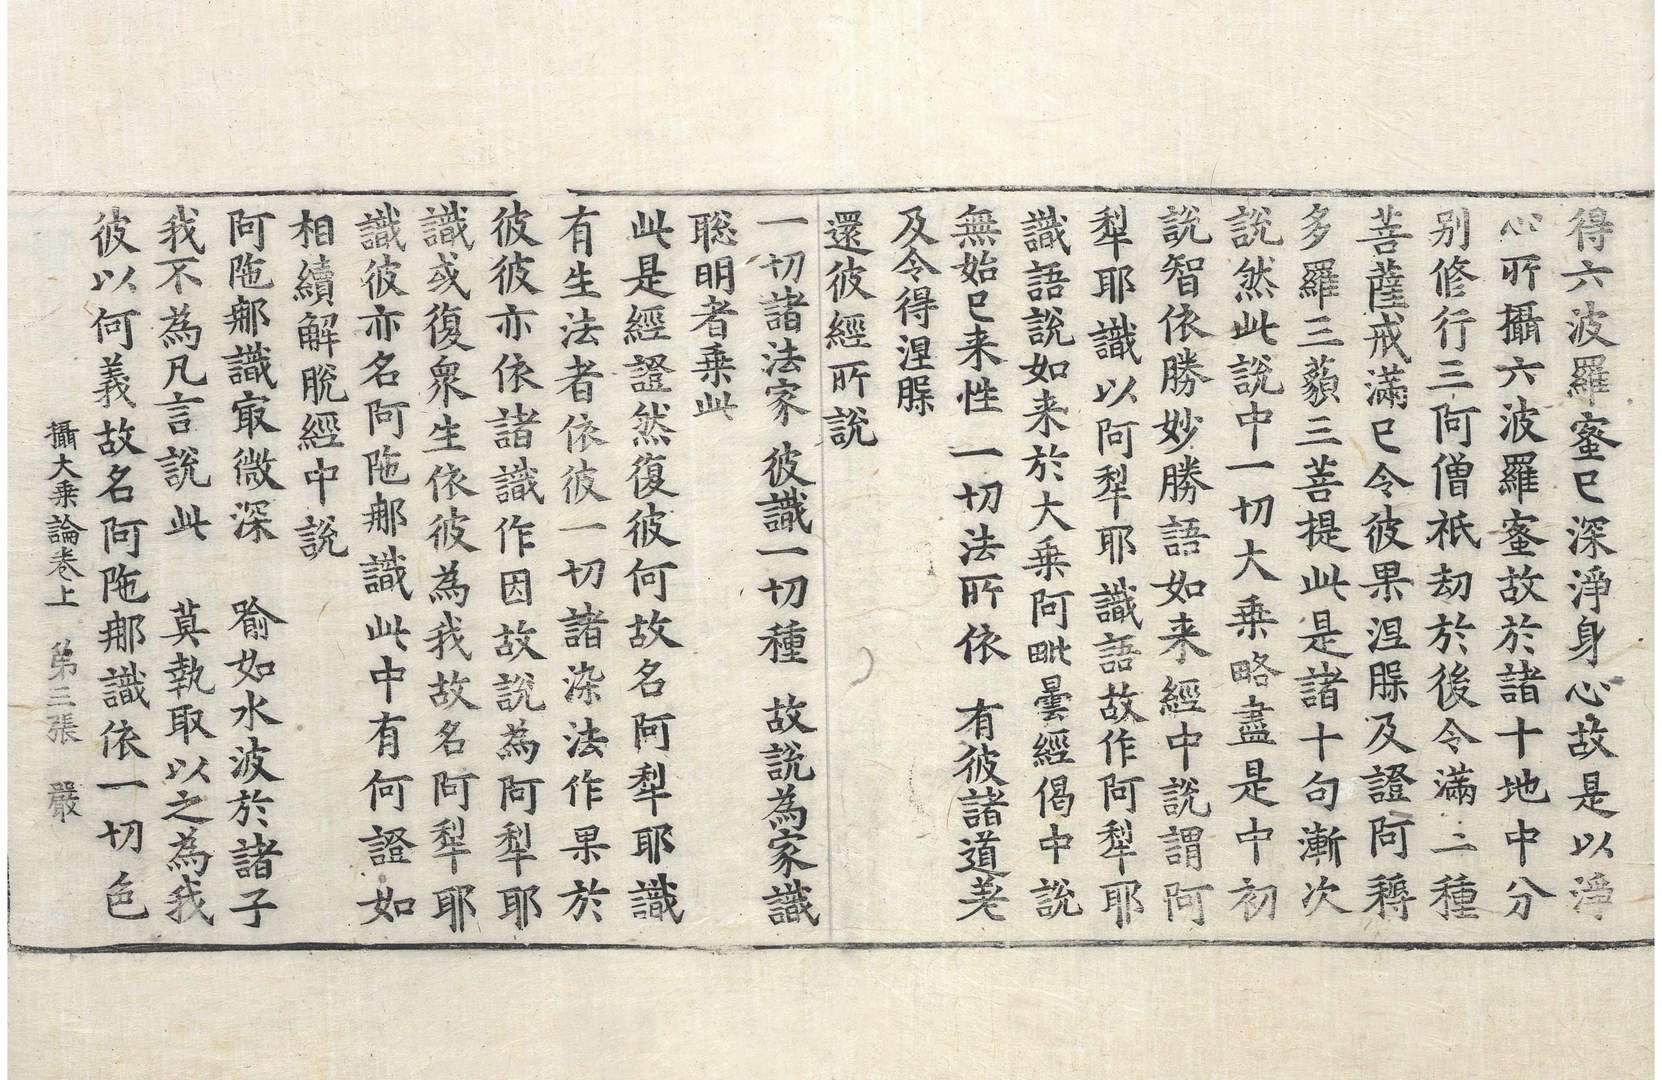 得六波羅蜜已深淨身心故是以淨
心所攝六波羅蜜故於諸十地中分
别修行三阿僧祇劫於後令滿二種
菩薩戒滿已令彼果涅槃及證阿耨
多羅三藐三菩提此是諸十句漸次
說然此說中一切大乗略盡是中初
說智依勝妙勝語如来經中說謂阿
犁耶識以阿犁耶識語故作阿犁耶
識語說如来於大乗阿毗曇經偈中說
無始已来性 一切法所依 有彼諸道差
及令得涅槃
還彼經所說
一切諸法家 彼識一切種 故說為家識
聡明者乗此
此是經證然復彼何故名阿犁耶識
有生法者依彼一切諸染法作果於
彼彼亦依諸識作因故說為阿犁耶
識或復衆生依彼為我故名阿犁耶
識彼亦名阿陁那識此中有何證如
相續解脫經中說
阿陁那識㝡微深 喻如水波於諸子
我不為凡言說此 莫執取以之為我
彼以何義故名阿陁那識依一切色
攝大乗論卷上 第三張 嚴